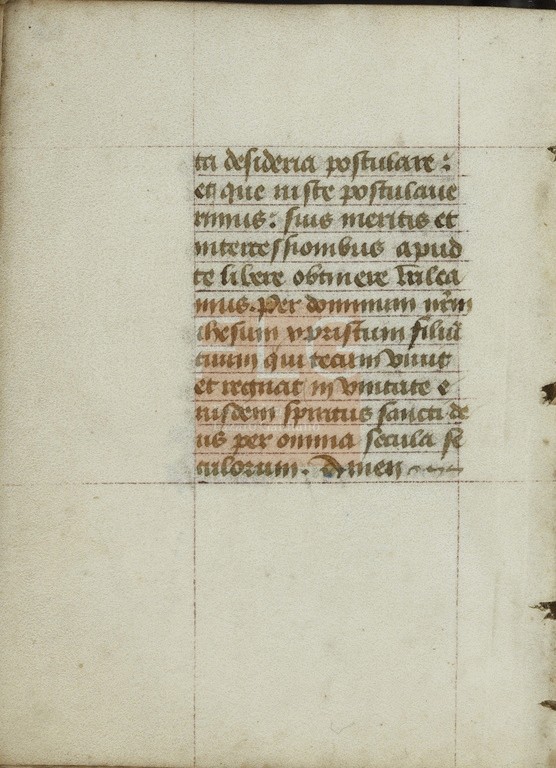 ta desideria postulare :
et que iuste postulaue
rimus : suis meritis et
intercessionibus apud
te libere obtinere
mus. Per dominum nr̄m
ihesum xpristum filiū
tuum qui tecum viuit
et regnat in vnitate e
iusdem spiritus sancti de
us per omnia secula se
culorum. Amen